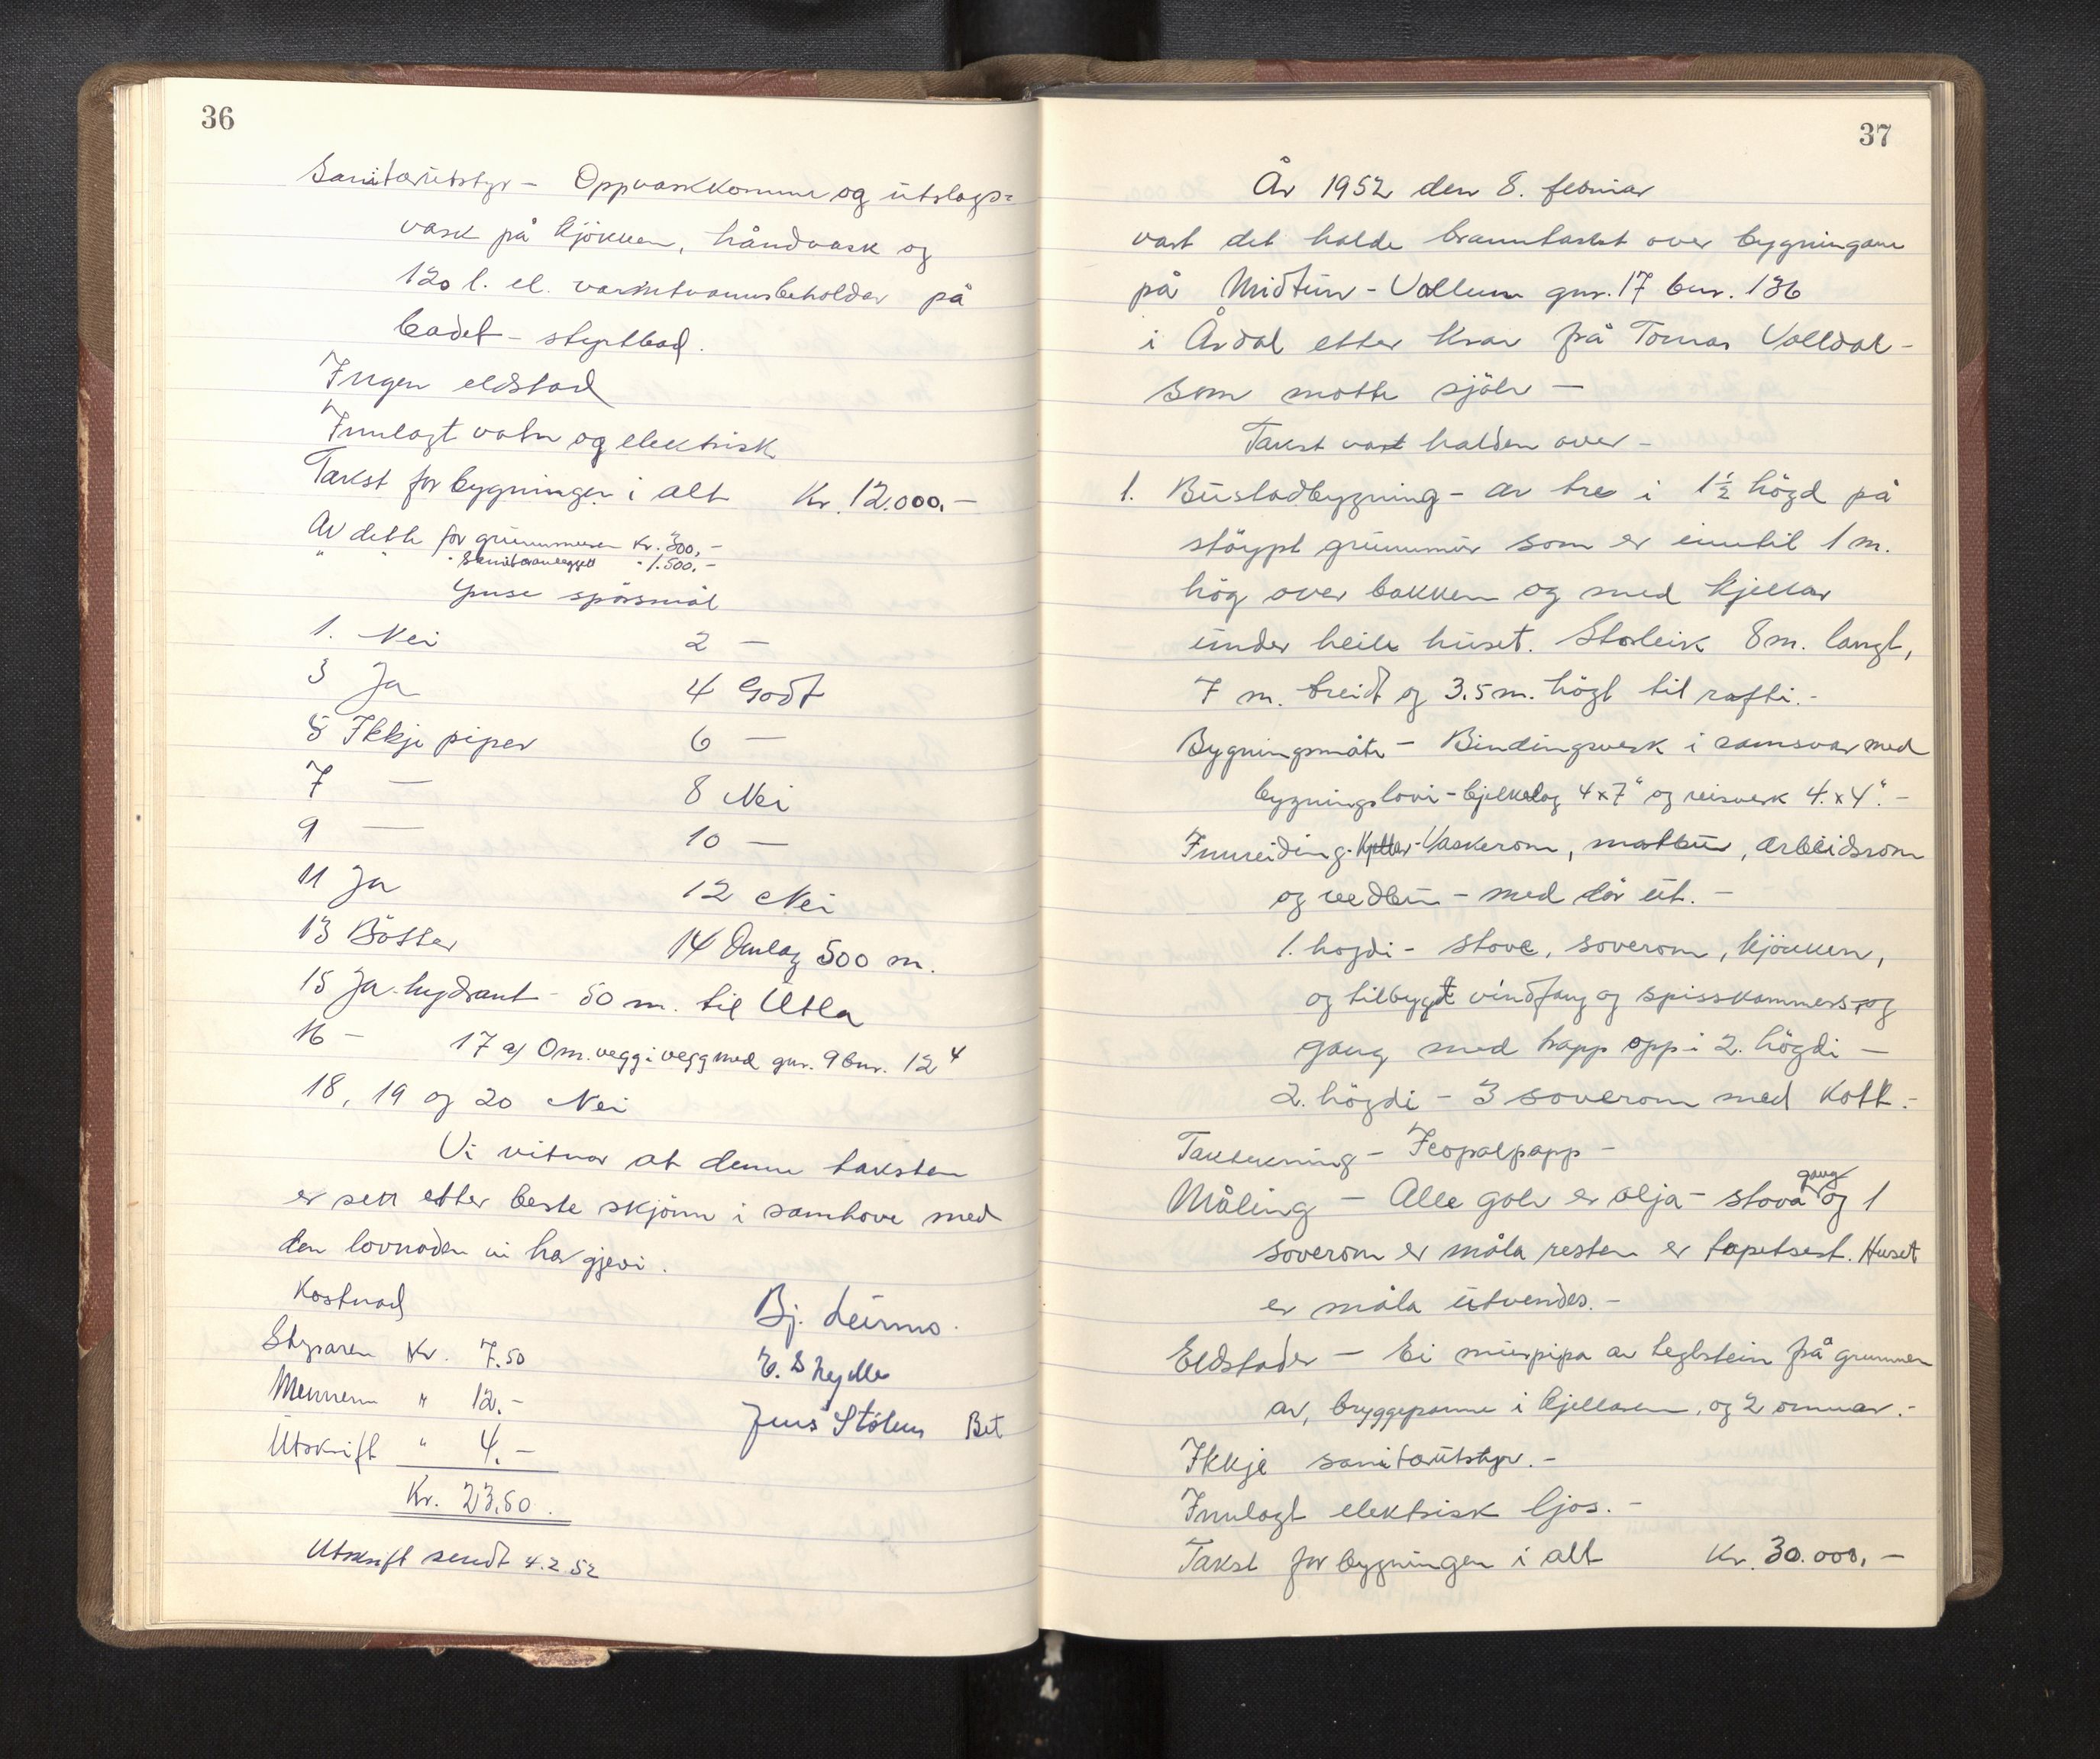 36
Sanitærutstyr - Oppvaskkomme og utslags=
vask på kjökken, håndvask og
120 l. el. varmtvannsbeholder på
badet - styrtbad.
Ingen eldstad
Innlagt vatn og elektrisk
Takst for bygningen i alt Kr. 12.000,-
Av dette for grunnmuren Kr. 300,-
" " " Sanitæranlegget " 1.500,-
Ymse spörsmål
1. Nei 2 -
3 Ja 4 Godt
5 Ikkje piper 6 -
7 - 8 Nei
9 - 10 -
11 Ja 12 Nei
13 Bötter 14 Omlag 500 m.
15 Ja-hydrant - 50 m. til Utla
16 - 17 a) 0 m. vegg i vegg med gnr. 9 bnr. 12 4
18, 19 og 20 Nei
Vi vitnar at denne taksten
er sett etter beste skjönn i samhove med
den lovnaden vi har gjevi.
Kostnad
Bj. Leirmo.
Styraren Kr. 7.50
Mennene " 12.-
Jens Stölen Bet
Utskrift " 4.-
Kr. 23,50.
Utskrift sendt 4.2.52
37
År 1952 den 8. februar
vart det halde branntakst over bygningane
på Midtun - Vollum gnr. 17 bnr. 136
i Årdal etter krav frå Tomas Volldal -
som møtte sjölv -
Takst vart halden over -
1. Bustadbygning - av tre i 1½ högd på
stöypt grunnmur som er inntil 1 m.
hög over bakken og med kjellar
under heile huset. Storleik 8 m. langt,
7 m. breidt og 3.5 m. högt til rafti.-
Bygningsmåte - Bindingsverk i samsvar med
bygningslovi - bjelkelag 4 x 7" og reisverk 4. x 4". -
Innreiding - Kjellar - Vaskerom, matbur, arbeidsrom
og vedbu - med dör ut. -
1. högdi - stove, soverom, kjökken,
og tilbygt vindfang og spisskammers og
gang med trapp opp i 2. högdi -
2. högdi - 3 soverom med kott.-
Taktekning - Icopalpapp -
gang
Måling - Alle golv er olja - stova og 1
soverom er måla resten er tapetsert. Huset
er måla utvendes. -
Eldstader - Ei murpipa av teglstein frå grunnen
av, bryggepanne i kjellaren, og 2 omnar.-
Ikkje sanitærutstyr. -
Innlagt elektrisk ljos. -
Takst for bygningen i alt Kr. 30.000,-